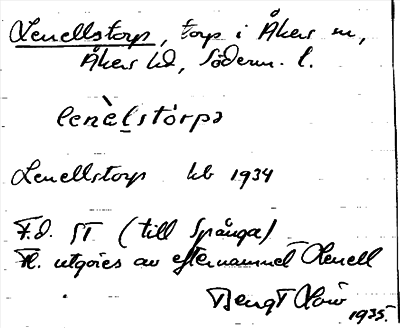 Lenellstorp, torp i Åkers sn,
Åkers hd, Söderm. l.
lenèlstórpə
Lenellstorp kb 1934
F.d. ST (till Spånga)
Fl. utgöres av efternamnet Lenell
Bengt
1935.